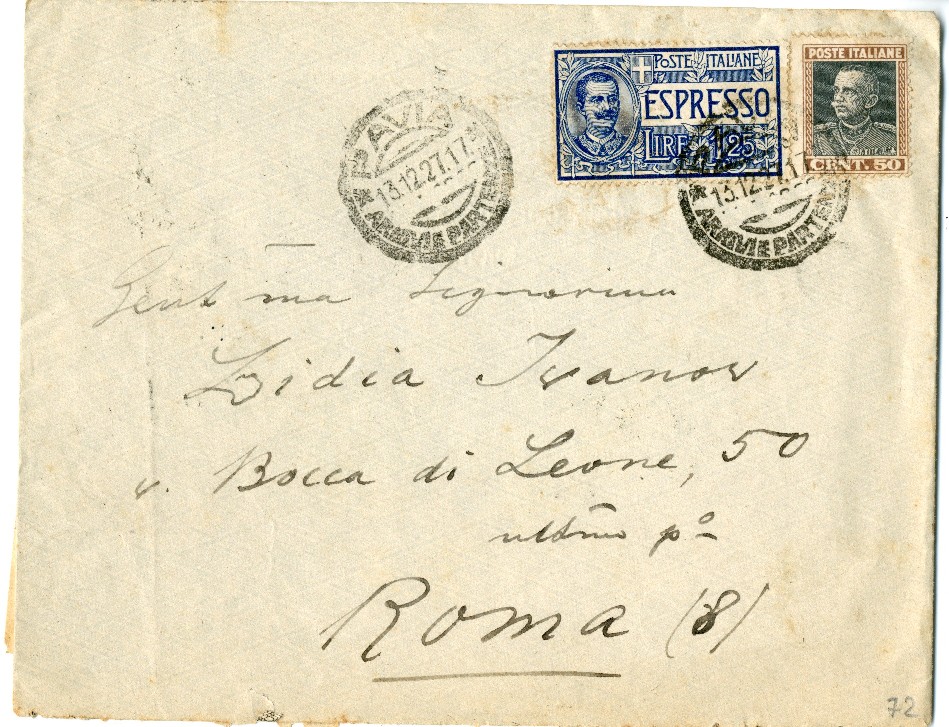 POSTE ITALIANE
ESPRESSO
LIRE 1,25
POSTE ITALIANE
CENT. 50
PAVIA
13.12.27.17
ARRIVI E PARTENZE
13.12.27.17
ARRIVI E PARTEN
Gent ma Signorina
Lidia Ivanov
v. Bocca di Leone, 50
ultimo pº
Roma (8)
72